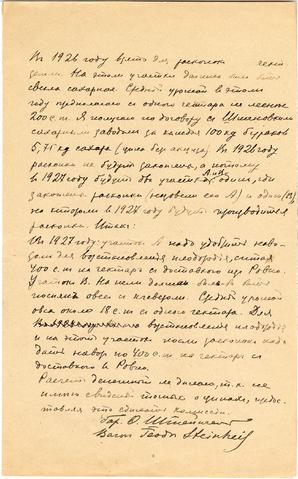 Въ 1926 году взято для раскопки
земли. На этом участке должна была быть
свекла сахарная. Средній урожай в этом
году предполагаю с одного гектара не менее
200 с.m. Я получаю по договору съ Шпановским
сахарным заводом за каждыя 100 kg бураков
5,75 kg сахара (цена без акциза). В 1926 году
раскопки не будут закончены, а потому
в 1927 году будут два участка А и В: один, где
закончена раскопка (назовем его А) и один (В),
на котором в 1927 году будут производится
раскопки. Итак:
В 1927 году участок А надо удобрить наво-
зом для возстановленія плодородія, считая
400 с.m. на гектар съ доставкого из Ровно.
Участок В. На нем должен быть
посеян овес с клевером. Средній урожай
овса около 18 с.m с одного гектара. Для
возстановленія плодородія
и на этот участок после раскопок надо
дать навоз по 400 с.m. на гектар съ
доставкого из Ровно.
Расчет денежный не делаю, т.к. не
имею сведений точных о ценах, предос-
тавляя это сделать комиссіи.
Бар. Ѳ. Штейнгель
Baron Teodor Steinheil